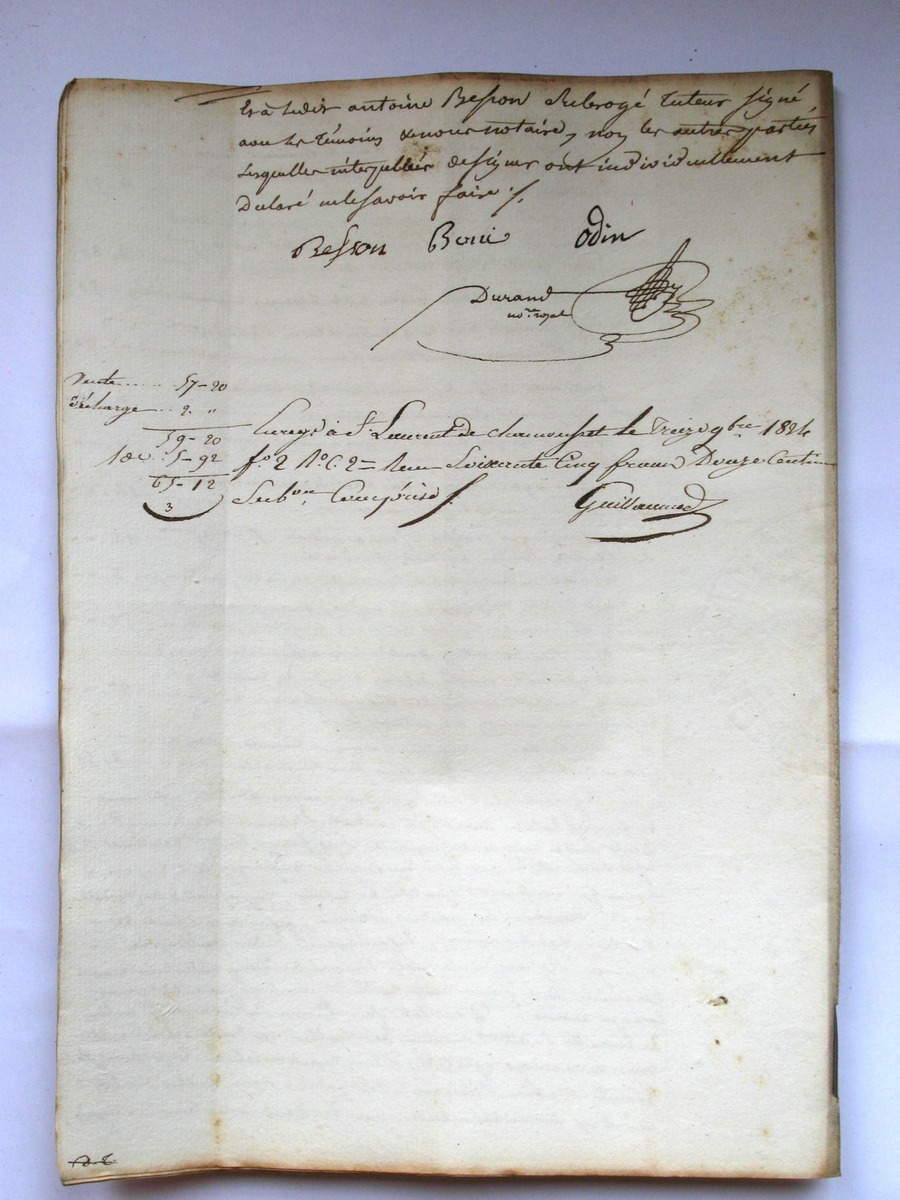 Et à ledit antoine Besson subrogé tuteur signé
avec les témoins & nous notaire, non les autres parties
lesquelles interpellées de signer ont individuellement
Déclaré ne le savoir faire ./.
Besson Odin
Durand
no.re royal
Vente ...... 57-20
Décharge .. 2. "
59-20
10e : 5-92
65-12
3
Enreg.é à St. Laurent de chamousset le treize 9bre 1824
fo. 2 Ro. C. 2 = Reçu Soixante Cinq francs Douze Centimes
Subon. Comprise ./.
Guillaumed